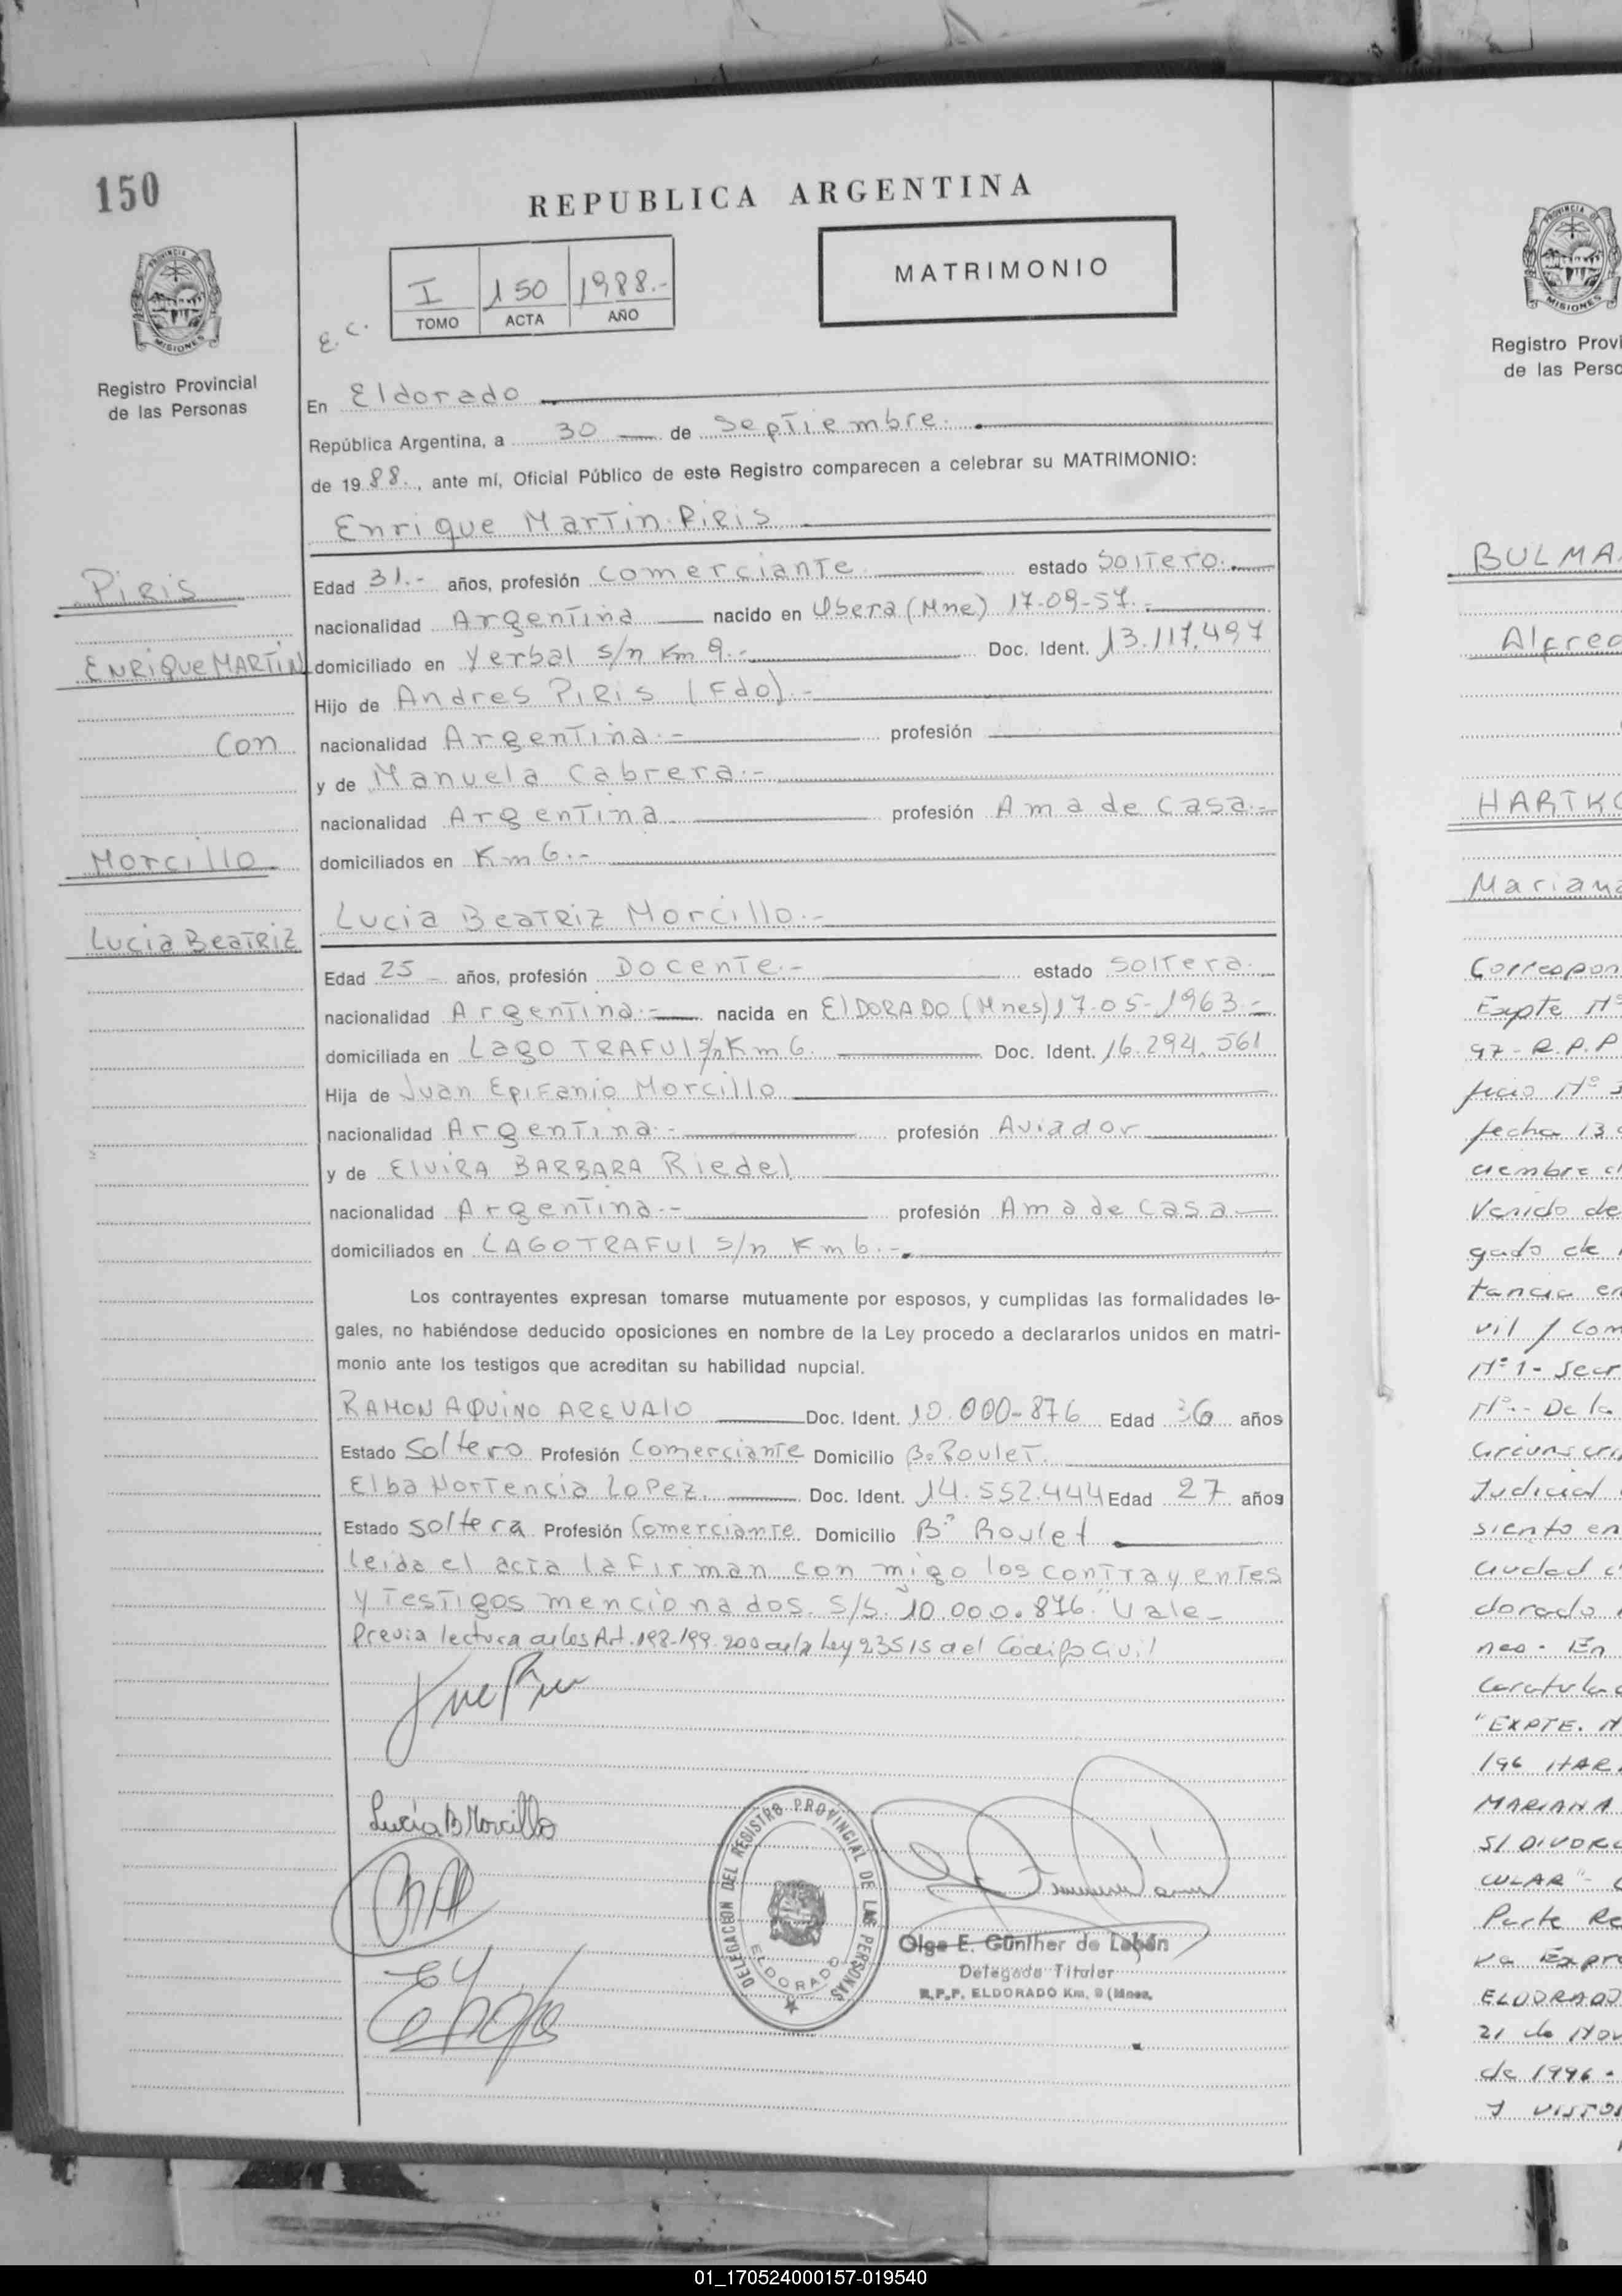 150
REPUBLICA ARGENTINA
PROVINCIA DE
MISIONES
Registro Provincial
de las Personas
I 150 1988.-
TOMO ACTA AÑO
MATRIMONIO
E. C.
En Eldorado
República Argentina, a 30 de Septiembre.
de 1988., ante mí, Oficial Público de este Registro comparecen a celebrar su MATRIMONIO:
Enrique Martin PIRIS
Piris
ENRIQUE MARTIN
Con
Morcillo
Lucia BeaTRiz
Edad 31.- años, profesión Comerciante estado SolTero.
nacionalidad Argentina nacido en Obera (Mne) 17-09-57.-
domiciliado en Yerbal s/n Km 9.- Doc. Ident. 13.117.497
Hijo de Andres PIRIS (Fdo).-
nacionalidad Argentina.- profesión
y de Manuela Cabrera.-
nacionalidad Argentina profesión Ama de Casa.-
domiciliados en Km 6.-
Lucia BeaTRiz Morcillo.-
Edad 25 años, profesión Docente.- estado soltera.
nacionalidad Argentina.- nacida en ElDORADO (Mnes) 17-05-1963.-
domiciliada en Lago TRAFUl s/n Km 6. Doc. Ident. 16.294.561
Hija de Juan Epifanio Morcillo
nacionalidad Argentina.- profesión Aviador
y de ElviRA BARBARA Riedel
nacionalidad Argentina.- profesión Ama de Casa
domiciliados en LAGO TRAFUl s/n Km 6.-
Los contrayentes expresan tomarse mutuamente por esposos, y cumplidas las formalidades le-
gales, no habiéndose deducido oposiciones en nombre de la Ley procedo a declararlos unidos en matri-
monio ante los testigos que acreditan su habilidad nupcial.
RAMON AQUINO AREVAlO Doc. Ident. 10.000-876 Edad 36 años
Estado Soltero Profesión Comerciante Domicilio Bo Roulet.
Elba Hortencia Lopez. Doc. Ident. 14.552.444 Edad 27 años
Estado soltera Profesión Comerciante. Domicilio Bº Roulet
leida el acta la firman con migo los contrayentes
y Testigos mencionados. S/S. 10.000.876." Vale-
Previa lectura de los Art. 198-199-200 de la Ley 23515 del Codigo Civil
Lucía B Morcillo
DELEGACION DEL REGISTRO PROVINCIAL DE LAS PERSONAS
ELDORADO
Olga E. Günther de Labán
Delegada Titular
R.P.P. ELDORADO Km. 9 (Mnes.
MISIONES
Registro Provi
de las Perso
BULMA
Alfred
HARTKO
Mariana
Correspon
Expte Nº
97- R.P.P
ficio Nº 3
fecha 13
ciembre d
Venido de
gado de
tancia en
vil y Com
Nº 1- Secr
Nº- De la
Circunscri
Judicial
siento en
Ciudad
dorado
nes- En
Caratulad
"EXPTE. N
196 HAR
MARIANA
S/ DIVORC
CULAR"-
Parte Re
va Expre
ELDORADO
21 de Nov
de 1996-
Y VISTOS
01_170524000157-019540